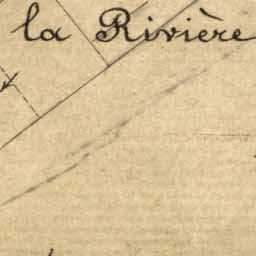 la Rivière